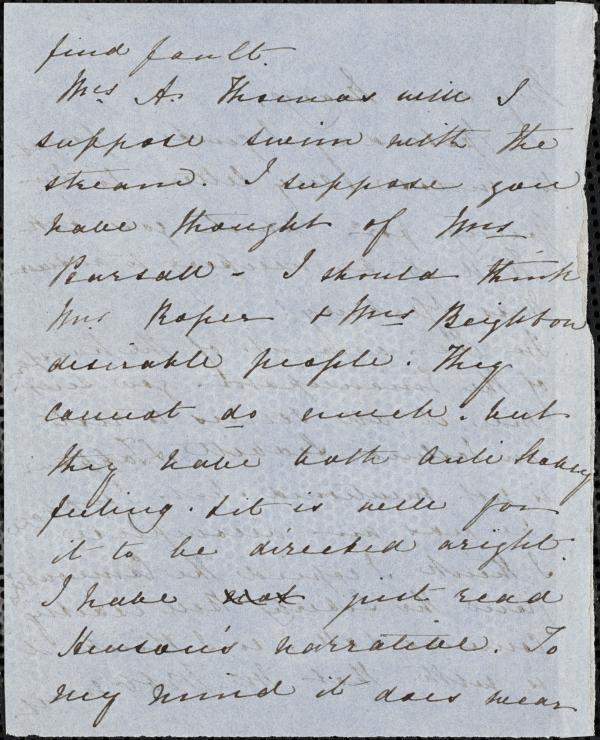 find fault.
Mrs A. Thomas will I
suppose swim with the
stream. I suppose you
have thought of Mrs
Pearsall - I should think
Mrs Roper & Mrs Beighton
desirable people. They
cannot do much. but
they have both Anti Slavery
feeling. & it is well for
it to be directed aright.
I have not just read
Henson's narrative. To
my mind it does wear